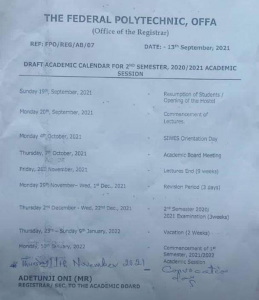 THE FEDERAL POLYTECHNIC, OFFA
(Office of the Registrar)
REF: FPO/REG/AB/07 DATE: - 13th September, 2021
DRAFT ACADEMIC CALENDAR FOR 2nd SEMESTER, 2020/2021 ACADEMIC
SESSION
Sunday 19th, September, 2021 - Resumption of Students /
Opening of the Hostel
Monday 20th, September, 2021 - Commencement of
Lectures
Monday 4th October, 2021 - SIWES Orientation Day
Thursday, October, 2021 - Academic Board Meeting
Friday, November, 2021 - Lectures End (9 weeks)
Monday November – Wed, 1st Dec., 2021 - Revision Period (3 days)
Thursday 2nd December – Wed, 22nd Dec., 2021 - 2nd Semester 2020/
2021 Examination (3weeks)
Thursday, – Sunday 9th January, 2022 - Vacation (3 Weeks)
Monday, January, - Commencement of 1st
Semester, 2021/2022
Academic Session
November 2021 - Convocation
ADETUNJI ONI (MR)
REGISTRAR/ SEC, TO THE ACADEMIC BOARD